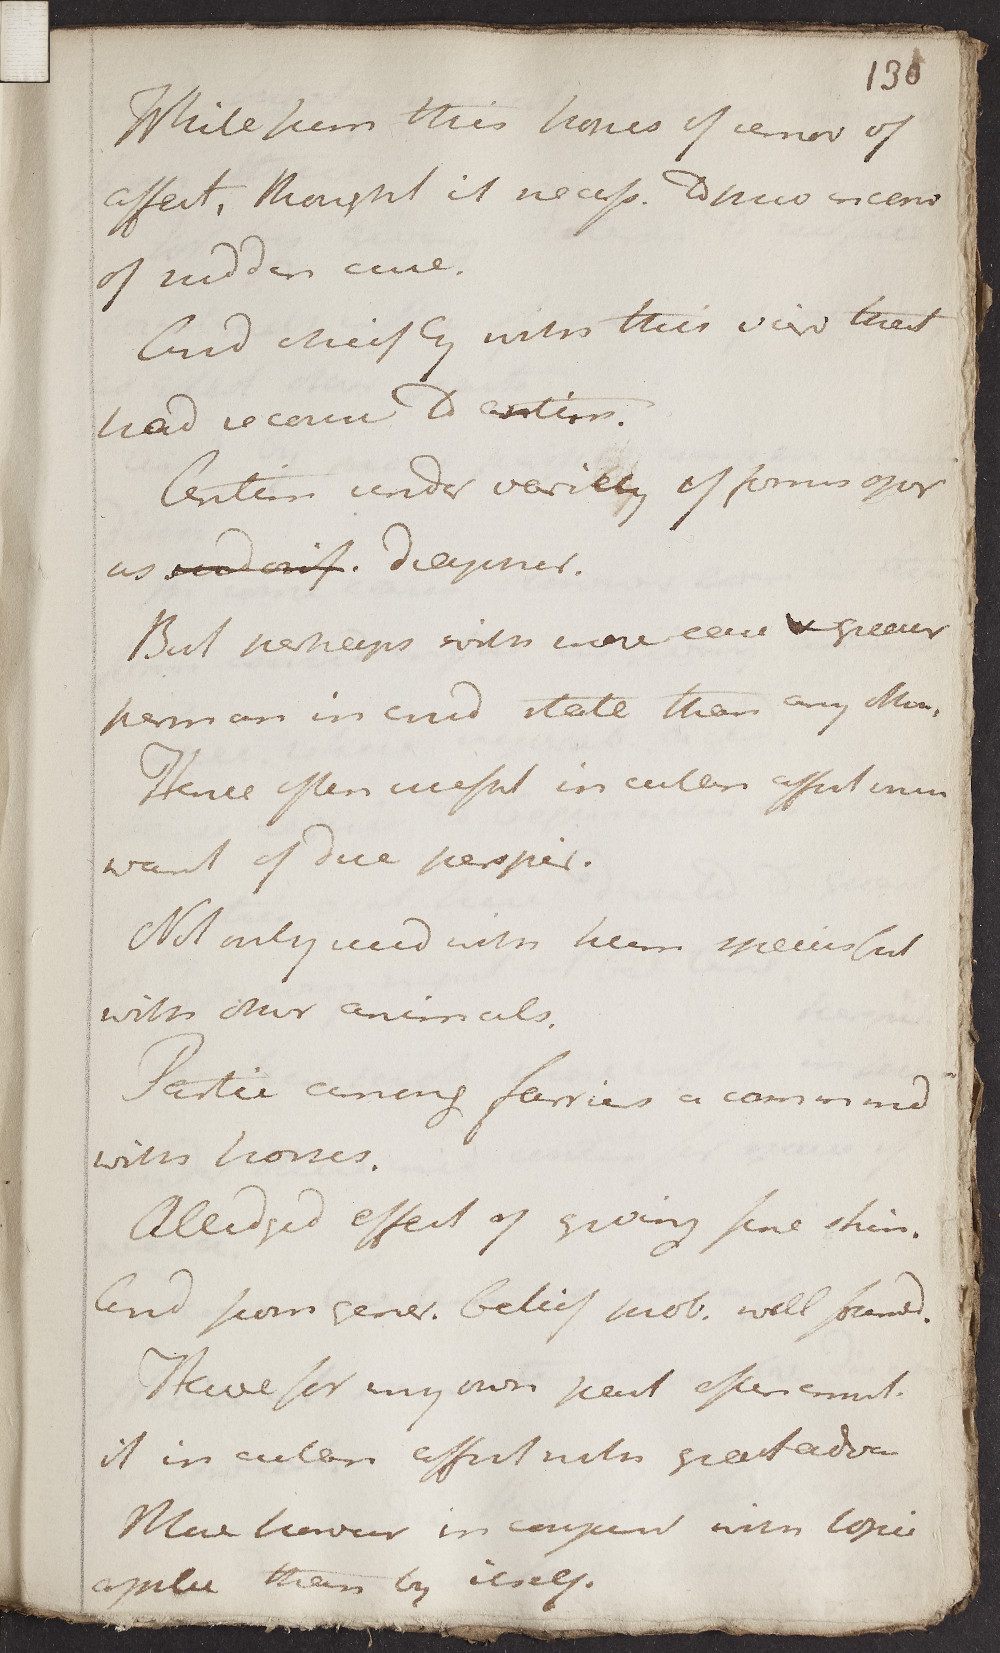 130
While from this hopes of remov of
affect, thought it necess. to
of sudden cure.
And chiefly with this view that
had recour to antim.
Antim under variety of forms oper
as sudorif. diaphor.
But perhaps with more ease & greater
perman in crud state than any other.
Hence often useful in cutan affect from
want of due perspir.
Not only used with hum species but
with other animals.
Partic among farriers a common med
with horses.
Alledged effect of giving fine skin.
And from gener. belief prob. well found.
Have for my own part often empl.
it in cutan affect with great advan
More however in conjunct with topic
applic than by itself.